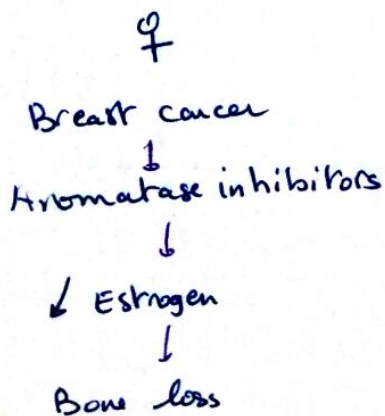 ♀
Breast cancer
↓
Aromatase inhibitors
↓
↓ Estrogen
↓
Bone loss